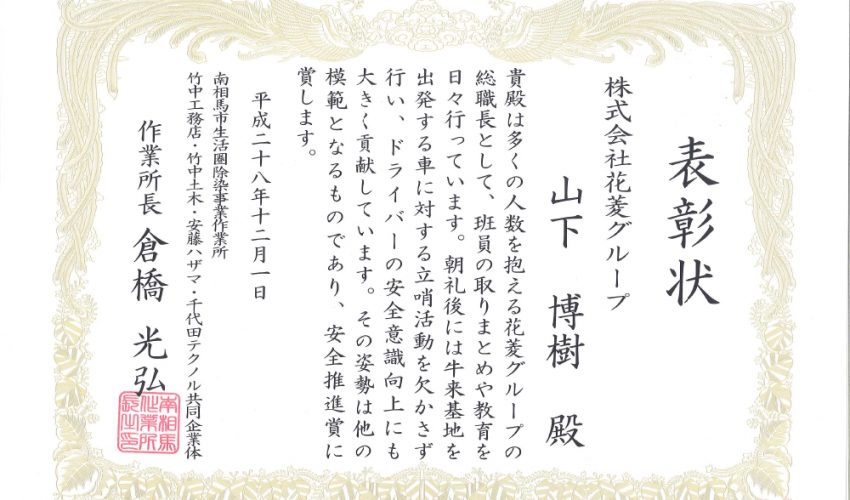 表彰状
株式会社花菱グループ
山下 博樹 殿
貴殿は多くの人数を抱える花菱グループの
総職長として、班員の取りまとめや教育を
日々行っています。朝礼後には牛来基地を
出発する車に対する立哨活動を欠かさず
行い、ドライバーの安全意識向上にも
大きく貢献しています。その姿勢は他の
模範となるものであり、安全推進賞に
賞します。
平成二十八年十二月一日
南相馬市生活圏除染事業作業所
竹中工務店・竹中土木・安藤ハザマ・千代田テクノル共同企業体
作業所長 倉橋 光弘
南相馬
作業所
長之印